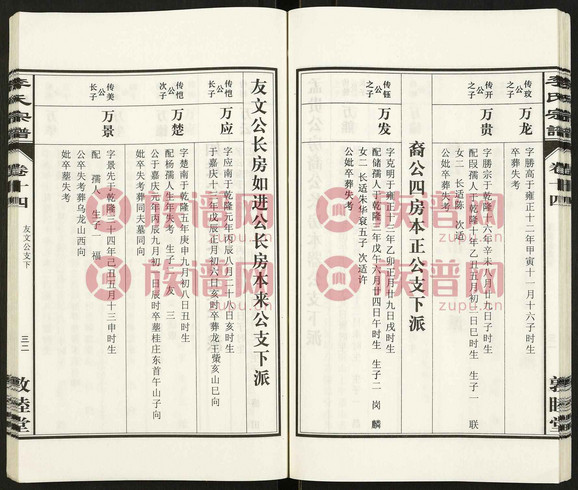 李氏宗谱
卷十四
敦睦堂
传玟公之子
万龙
字腾高于雍正十二年甲寅十一月十六子时生
卒葬失考
传开公之子
万贵
字腾宗于乾隆十六年辛未八月廿九日子时生
配段孺人于乾隆十年乙丑五月初二日巳时生 生子一 联
女二 长适陈 次适
公妣卒葬失考
裔公四房本正公支下派
传钰公之子
万发
字克明于雍正十二年乙卯正月廿九日戌时生
配储孺人于乾隆三年戊午六月廿四日午时生 生子二 岗 麟
女二 长适朱华衮五子 次适许
公妣卒葬失考
友文公长房如进公长房本来公支下派
传恺公长子
万应
字应南于乾隆元年丙辰八月二十八日亥时生
于嘉庆十三年戊辰正月初六日亥时卒葬龙王蓥亥山巳向
传恺公次子
万楚
字楚南于乾隆五年庚申九月初八日丑时生
配杨孺人生年失考 生子一 友三
公于嘉庆元年丙辰九月初一日辰时卒墓桂庄东首午山子向
妣卒失考葬同夫墓同向
传美公长子
万景
字景先于乾隆三十四年己丑五月十三申时生
配 孺人 生子一 福
公卒失考葬乌龙山西向
妣卒葬失考
李氏宗谱
卷十四
友文公支下
三二
敦睦堂
族谱网
zupu.cn
族谱网
zupu.cn
族谱网
zupu.cn
族谱网
zupu.cn